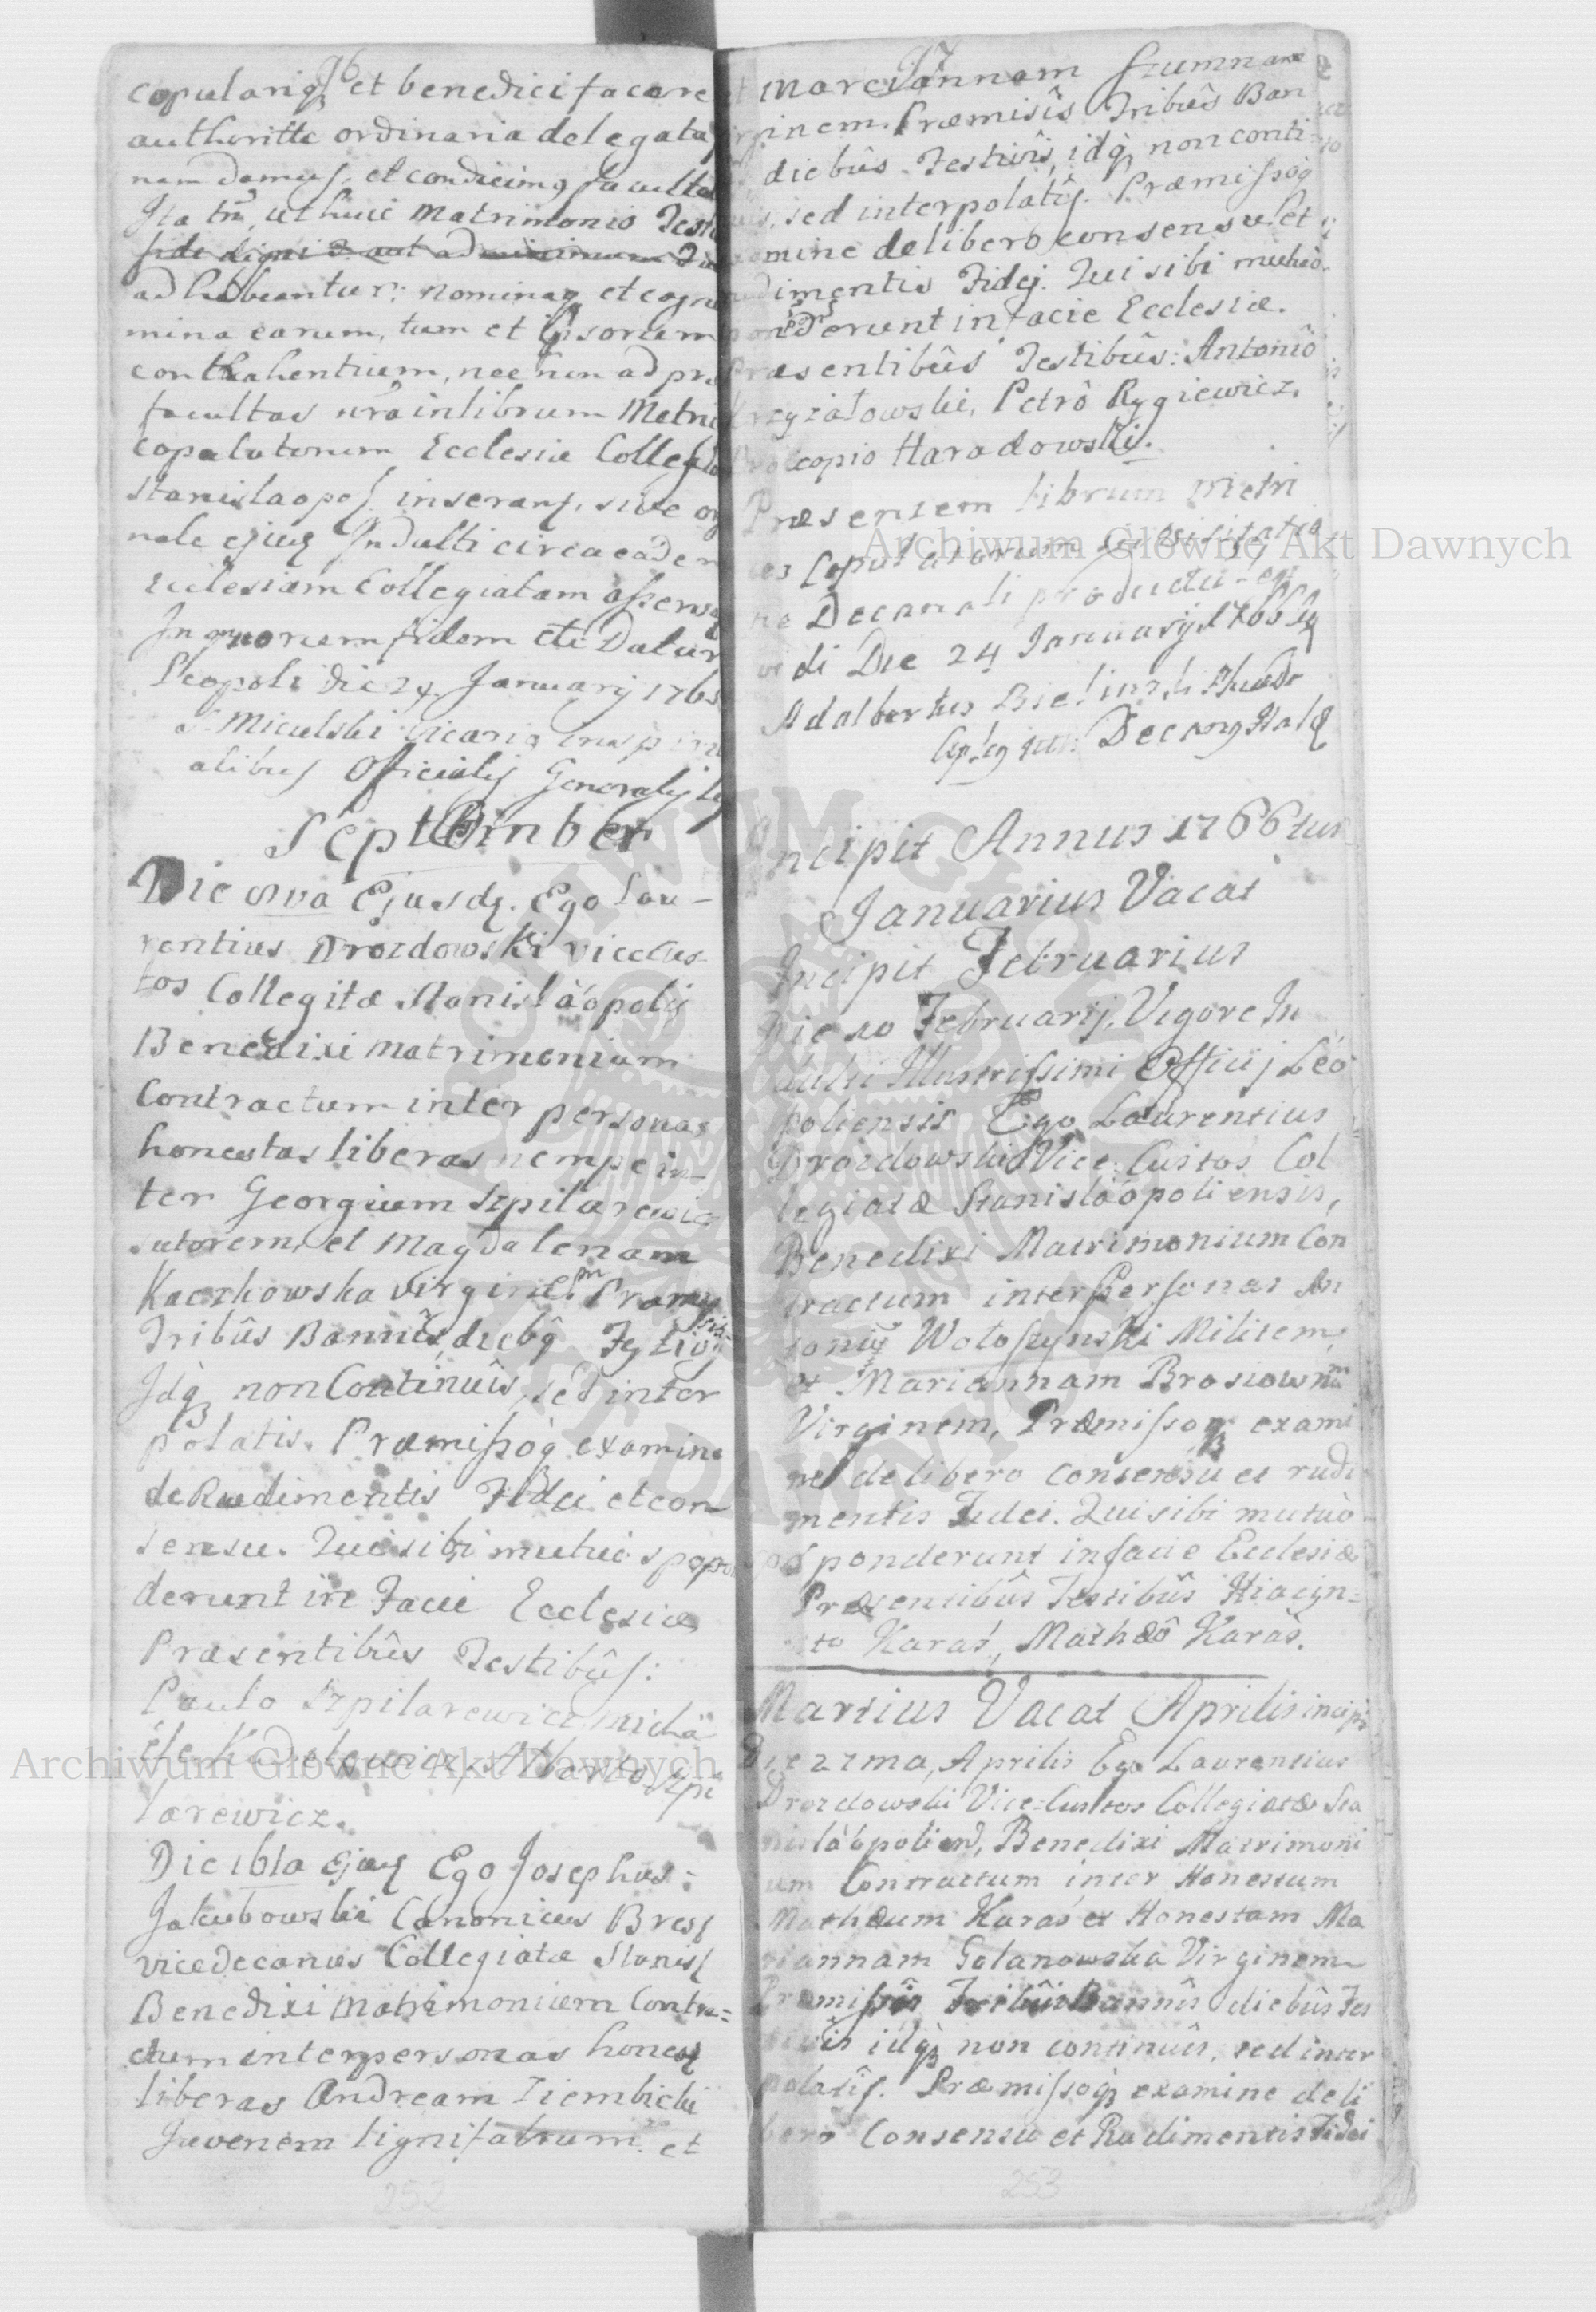 96
copulariq et benedici facere
authoritte ordinaria delegata
nam damus, et concedimus facultat
Ita tn, ut huic Matrimonio Test
fide digni 3. aut ad minimum Duo
adhibeantur; nominaq et cogno
mina earum, tum et ipsorum
contrahentium, nec non ad præ
facultas nra in librum Metri
copulatorum Ecclesiæ Collegia
Stanislaopol inserans, sive ori
nale ejus Indulti circa eadem
Ecclesiam Collegiatam asserv
In quorum fidem etc Datur
Leopoli die 24 January 1765
S. Micielski Vicariq in spiritu
alibus Officialis Generalis
September
Die 8va Ejusdq. Ego Lau-
rentius Drozdowski vicecus-
tos Collegitæ Stanislàopolis
Benedixi matrimonium
Contractum inter personas
honestas liberas nempe in-
ter Georgium Szpilarewicz
sutorem, et Magdalenam
Kaczkowska Virginem. Præmis
sis
Tribûs Bannis, diebq Festivis
Jdq non Continuîs, sed inter
polatis. Præmissoq examine
de Rudimentis Fidei et con-
sensu. Qui sibi mutuo spopon
derunt in Facie Ecclesiæ
Præsentibûs Testibûs:
Paulo Szpilarewicz, Michà
éle Alberto Szpi
larewicz.
Die 16ta Ejusq Ego Josephus
Jakubowski Canonicus Bres
vicedecanus Collegiatæ Stanis
Benedixi Matrimonium Contra=
ctum inter personas hones
liberas Andream Ziembicki
Juvenem lignifabrum. et
252
97
Mariannam Szumnam
ginem. Præmisîs Tribûs Ban
diebûs Festivîs, idq non conti
is, sed interpolatîs. Præmissoq
amine de libero consensu et
dimentis Fidej. Qui sibi mutuo
ponderunt in facie Ecclesiæ.
Præsentibûs Testibûs: Antoniô
Krzyżałowski, Petrô Rygiewicz,
Procopio Haradowski.
Præsentem librum Metri
ces Copulatorum in visitatio
ne Decanali productu
vidi Die 24 January 1766
Adalbertus Bielinski
Decanq Hal
Incipit Annus 1766tus
Januarius Vacat
Incipit Februarius
Die 10 Februarij. Vigore In
dulti Illustrissimi Officij Leo
poliensis Ego Laurentius
Drozdowski Vice-Custos Col
legiatæ Stanislàopoliensis,
Benedixi Matrimonium Con
tractum inter Personas An
toniũ Wołoszynski Militem,
et Mariannam Brosiownam
Virginem, Præmissoq exami
ne de libero consensu et rudi
mentis Fidei. Qui sibi mutuò
spoponderunt in facie Ecclesiæ
Præsentibûs Testibûs Hiacyn=
to Karaś, Mathæô Karaś.
Martius Vacat Aprilis incipit
Die 27ma, Aprilis Ego Laurentius
Drozdowski Vice-Custos Collegiatæ Sta
nislàopolien, Benedixi Matrimoni
um Contractum inter Honestum
Mathæum Karaś et Honestam Ma
riannam Golanowska Virginem
Præmissîs Tribûs Bannîs diebûs Fes
tivîs idq non continuîs, sed inter
polatîs. Præmissoq examine de li
bero Consensu et Rudimentis Fidei
253
Archiwum Główne Akt Dawnych
Archiwum Główne Akt Dawnych
ARCHIWUM GŁÓWNE AKT DAWNYCH